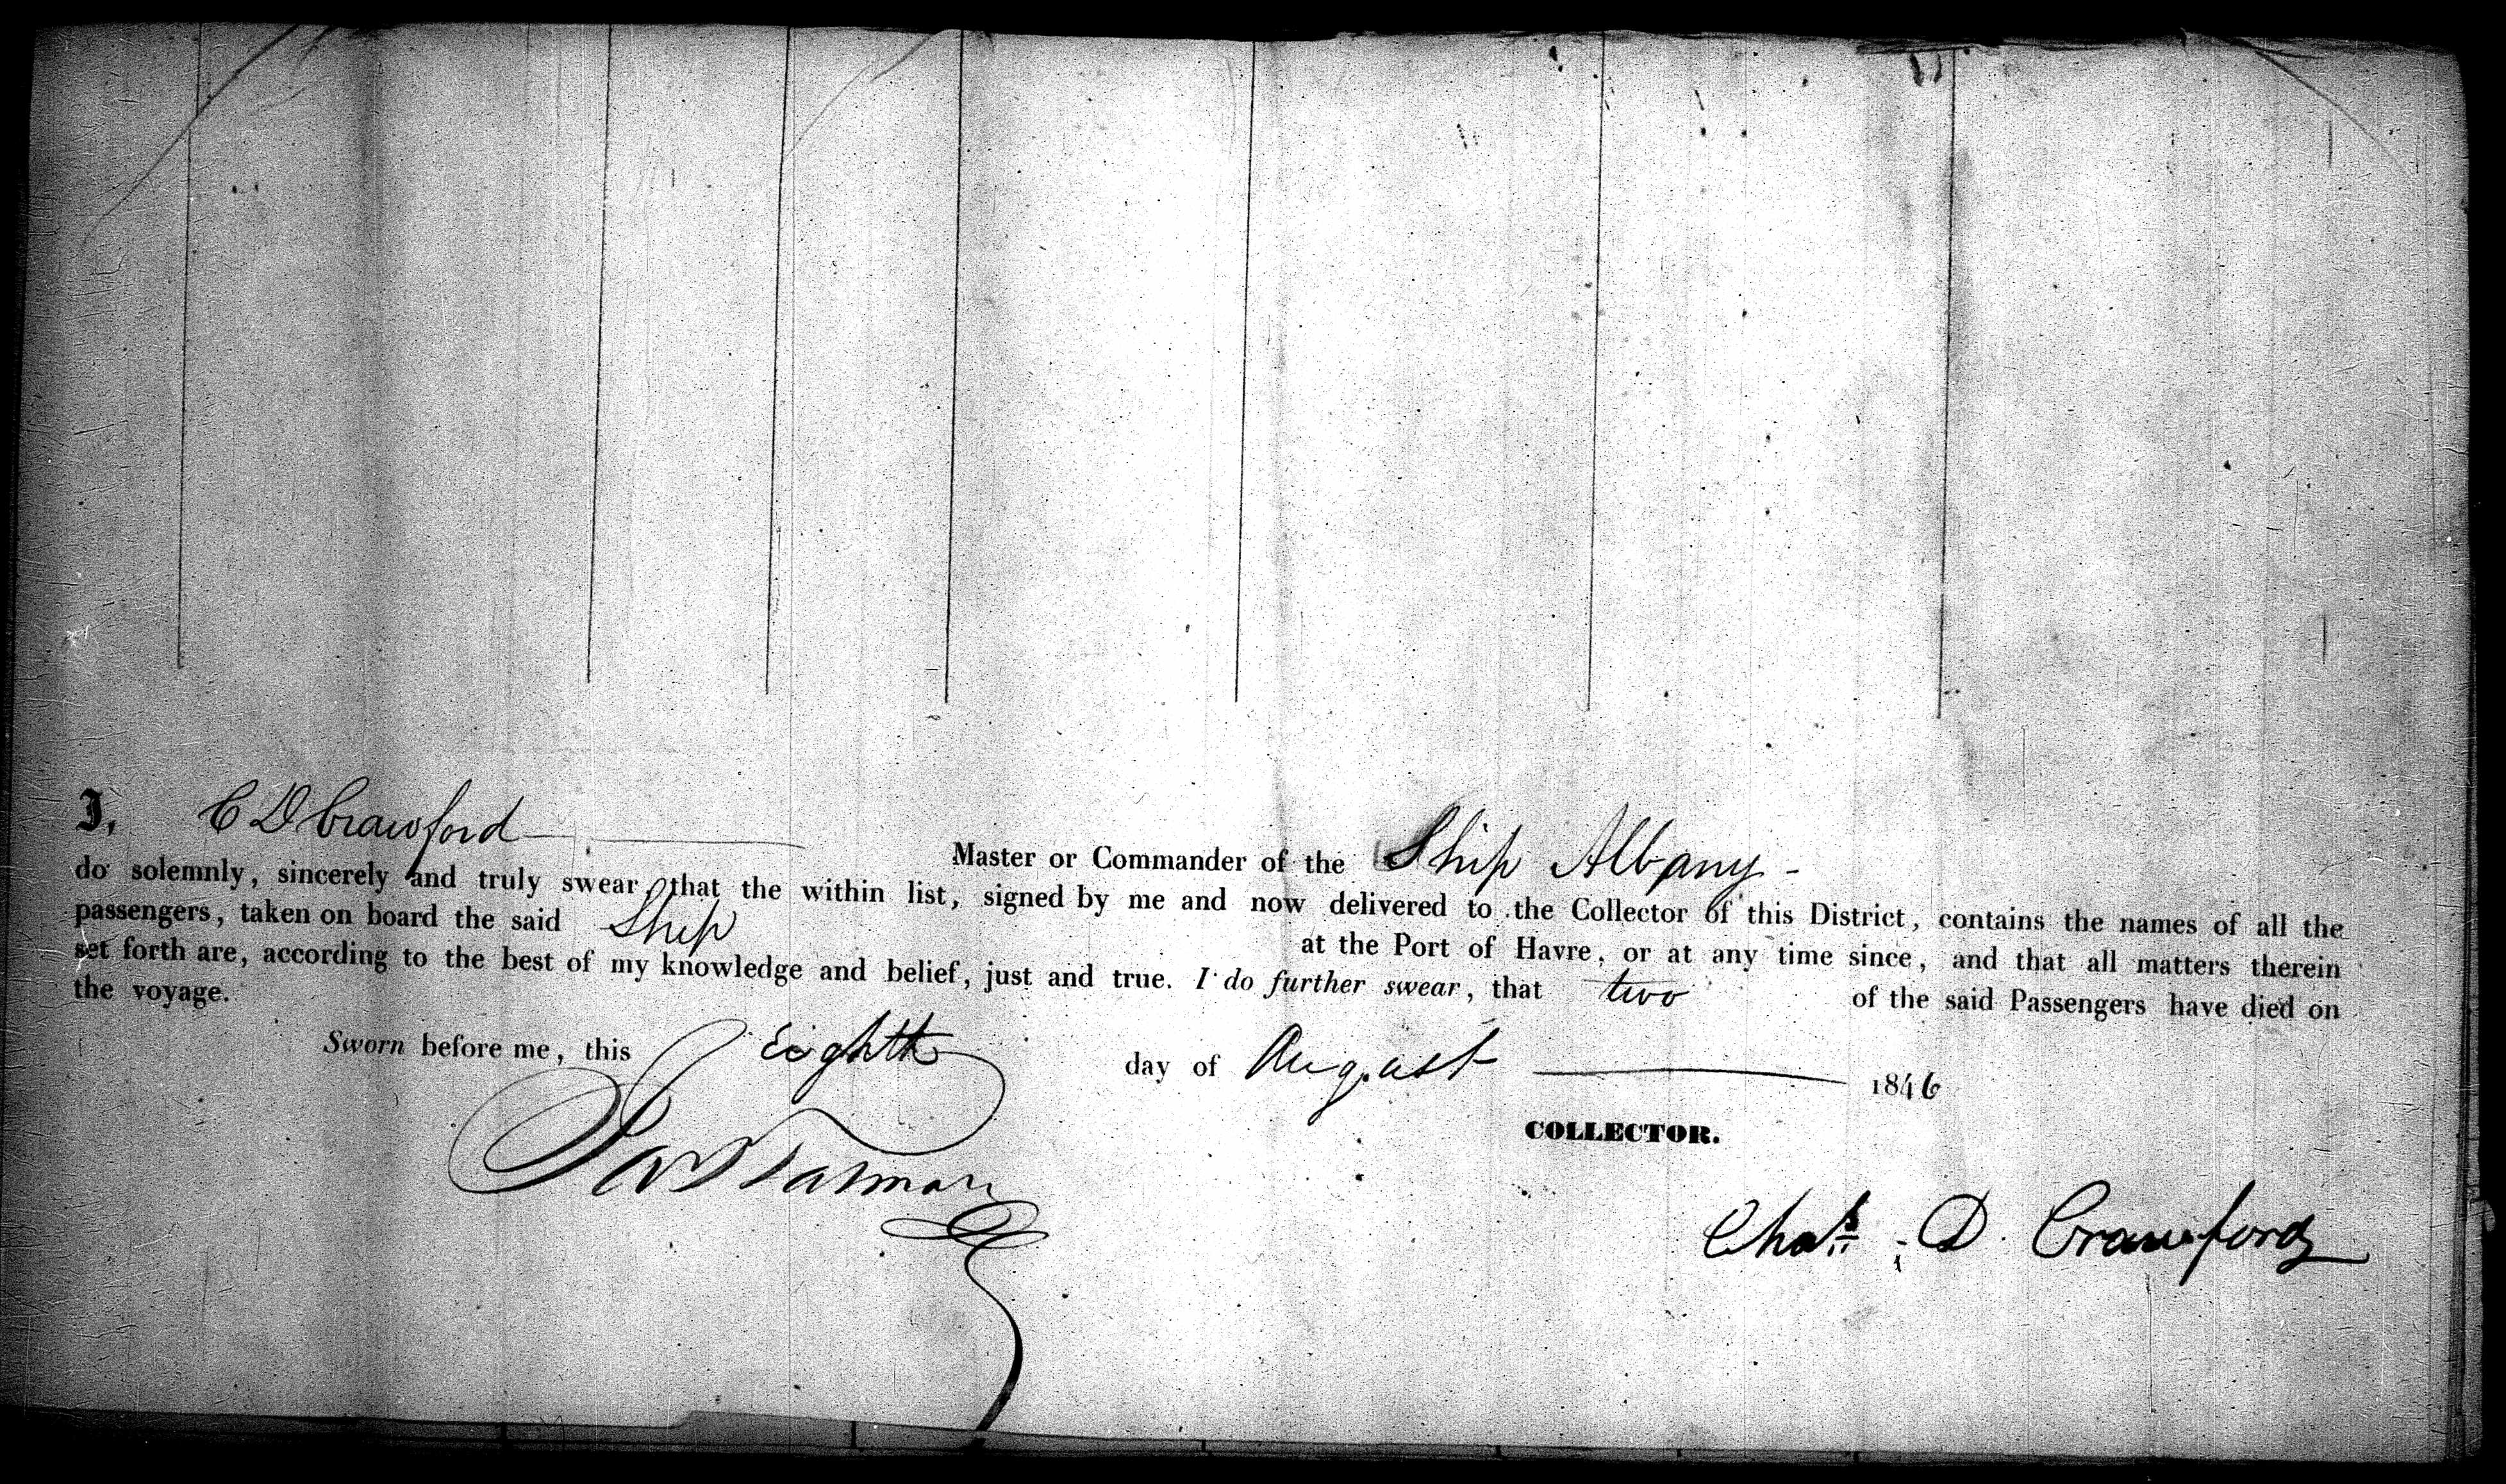 I, C D Crawford Master or Commander of the Ship Albany -
do solemnly, sincerely and truly swear, that the within list, signed by me and now delivered to the Collector of this District, contains the names of all the
passengers, taken on board the said Ship at the Port of Havre, or at any time since, and that all matters therein
set forth are, according to the best of my knowledge and belief, just and true. I do further swear, that two of the said Passengers have died on
the voyage.
Sworn before me, this Eighth day of August 1846
COLLECTOR.
Chas. D. Crawford